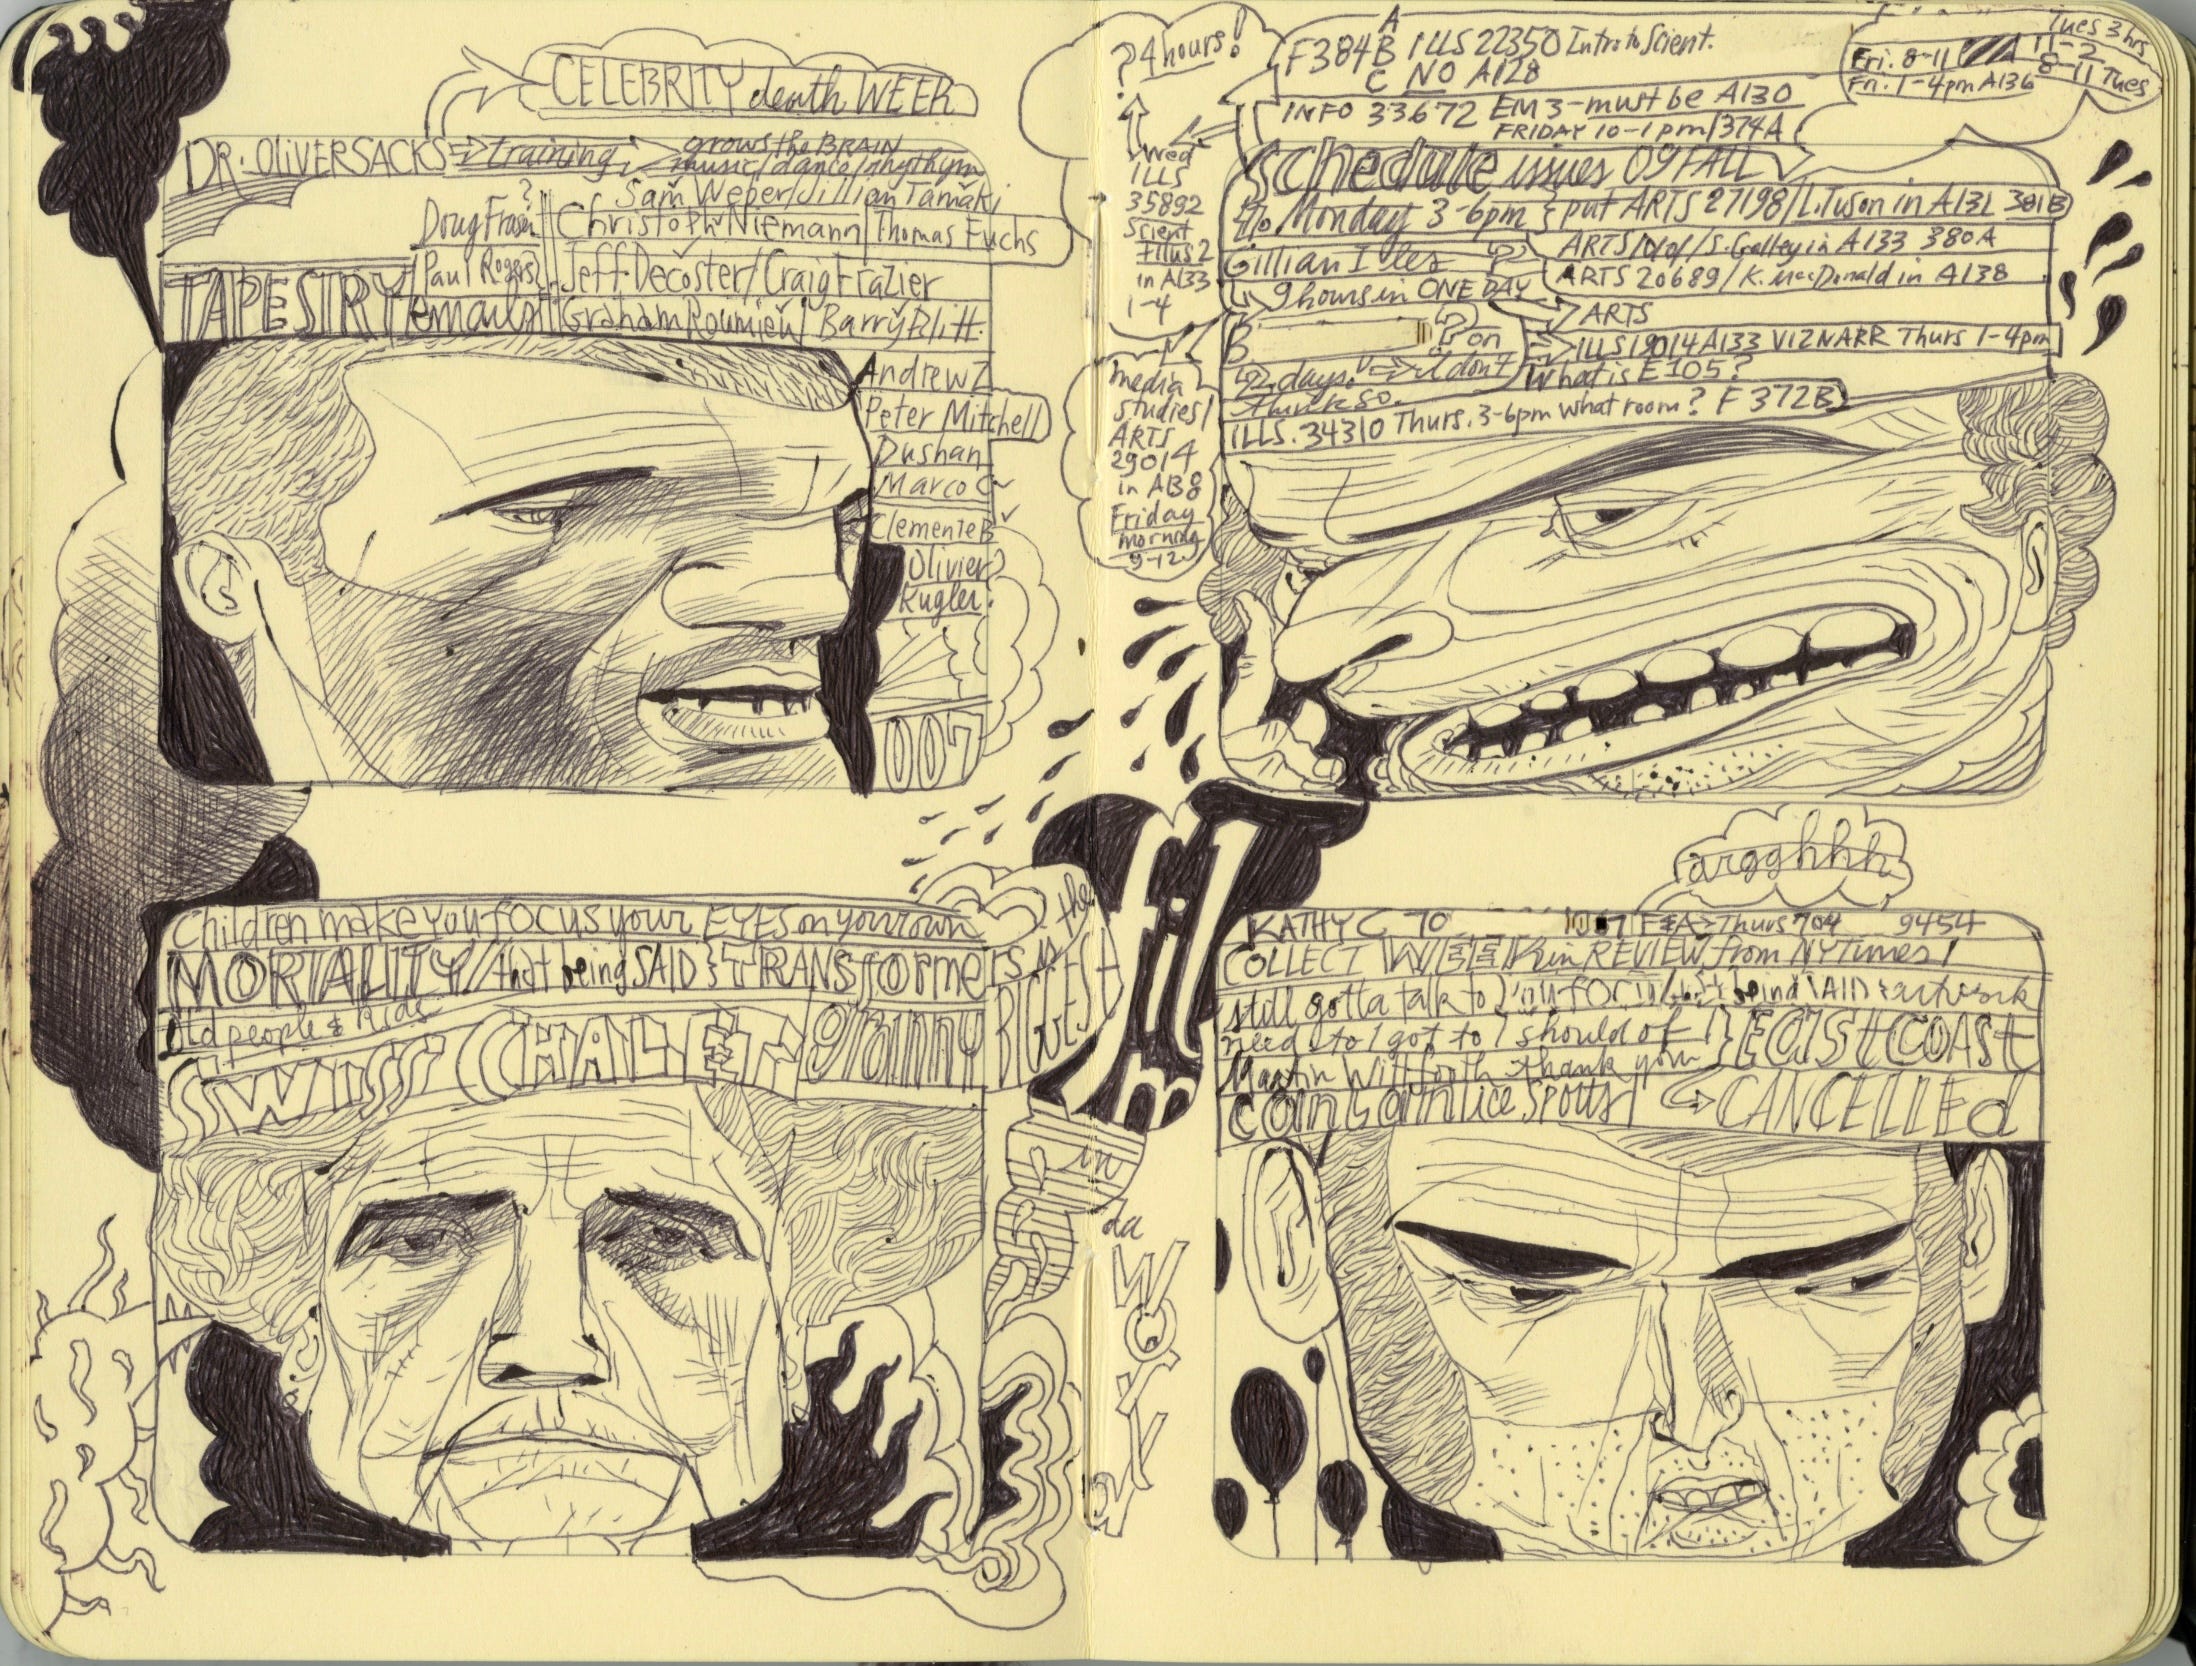 CELEBRITY death WEEK
DR. OLIVER SACKS training grows the BRAIN
music/dance/rhythym
Sam Weber/Jillian Tamaki
? Doug Fraser Christoph Niemann Thomas Fuchs
Paul Rogers Jeff Decoster/Craig Frazier
TAPESTRY emails Graham Roumieu/Barry Blitt.
Andrew Z
Peter Mitchell
Dushan
Marco C
Clemente B
Olivier
Kugler
007
Children make you focus your EYES on your own
MORTALITY/that being SAID TRANSformers is the
BIGGEST
film
in
da
WORLD
Old people & kids
SWISS CHALET granny
? 4 hours!
Wed
ILLS
35892
Scient
Illus 2
in A133
1-4
media
studies/
ARTS
29014
in AB8
Friday
morning
9-12
A
F384B ILLS 22350 Intro to Scient.
C NO A128
Tues 3 hrs
Fri. 8-11 11-2
8-11 Tues
Fri. 1-4pm A136
INFO 33672 EM3-must be A130
FRIDAY 10-1pm/374A
Schedule issues 09 FALL
Monday 3-6pm put ARTS 27198/L.Tuson in A131 381B
ARTS in A133 380A
Gillian Iles ARTS 20689/K. MacDonald in A138
9 hours in ONE DAY
ARTS
B ? on ILLS 19014 A133 VIZNARR Thurs 1-4pm
2 days! I don't What is E105?
think so.
ILLS. 34310 Thurs. 3-6pm what room? F 372B
argghhh
KATHY C Thurs 9454
COLLECT WEEK in REVIEW from NYTimes!
still gotta talk to artwork
need to I got to I should of EAST COAST
Martin Wittfooth thank you
CANCELLED